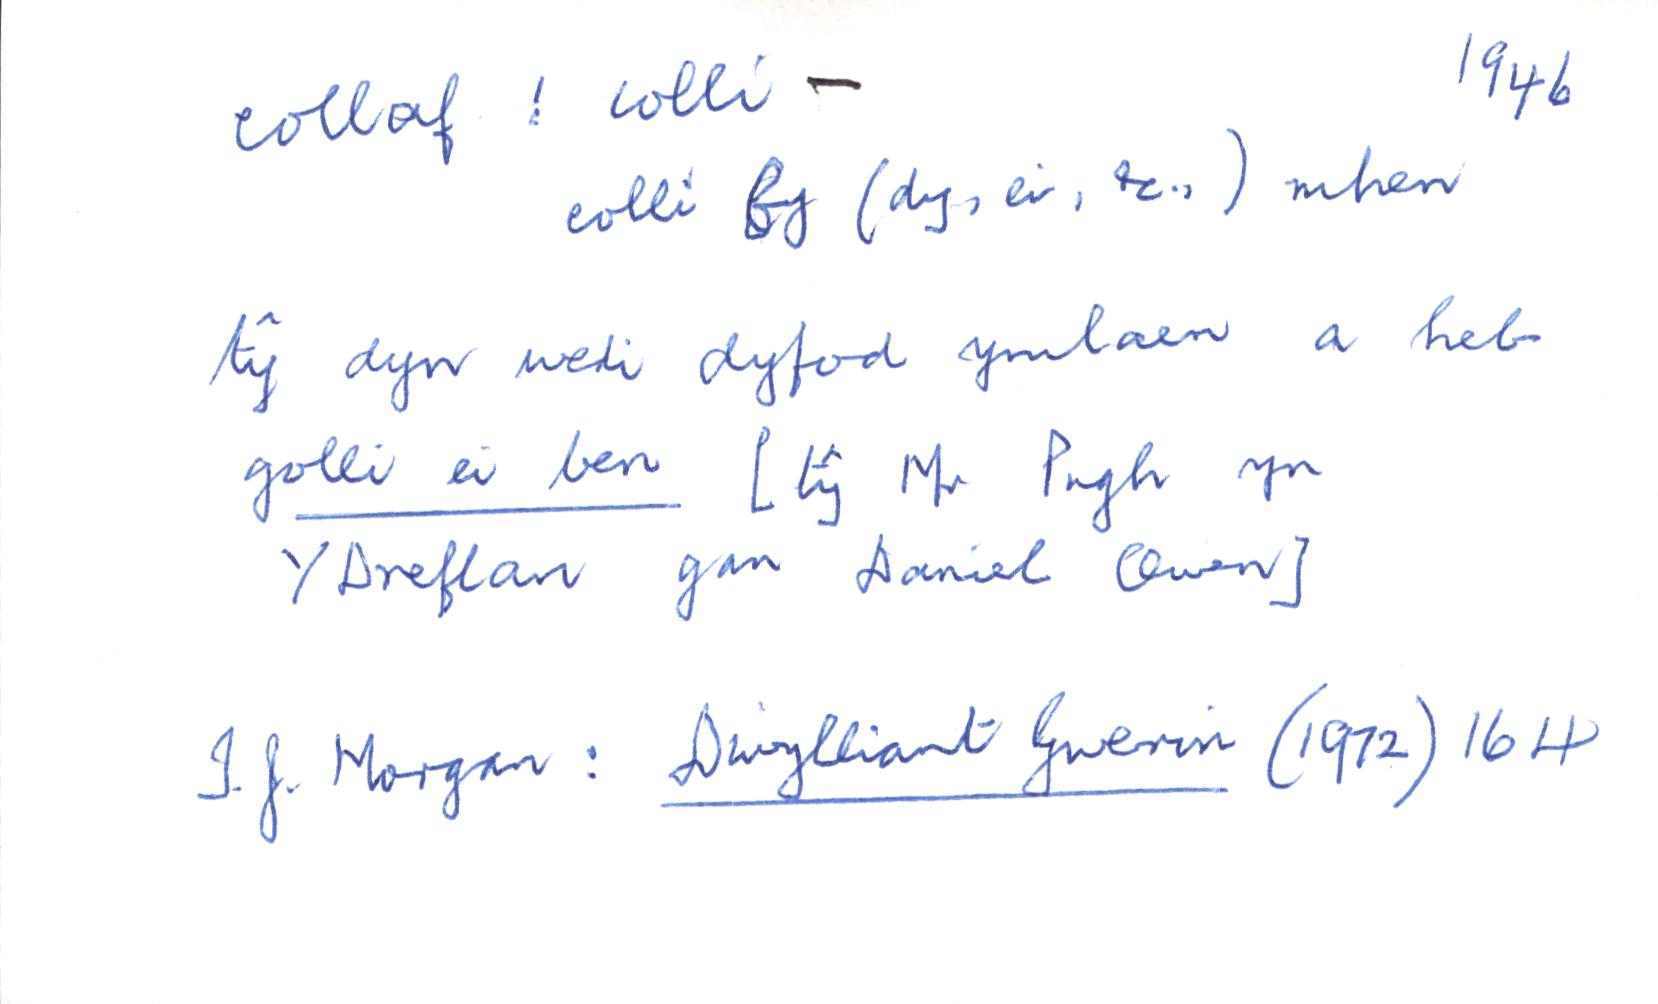 1946
collaf : colli –
colli fy (dy, ei, &c.,) mhen
tŷ dyn wedi dyfod ymlaen a heb
golli ei ben [tŷ Mr Pugh yn
Y Dreflan gan Daniel Owen]
T.J. Morgan : Diwylliant Gwerin (1972) 164